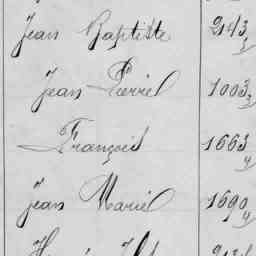 Jean Baptiste 2143 3
Jean Pierre 1003 3
François 1663 4
Jean Marie 1690 4